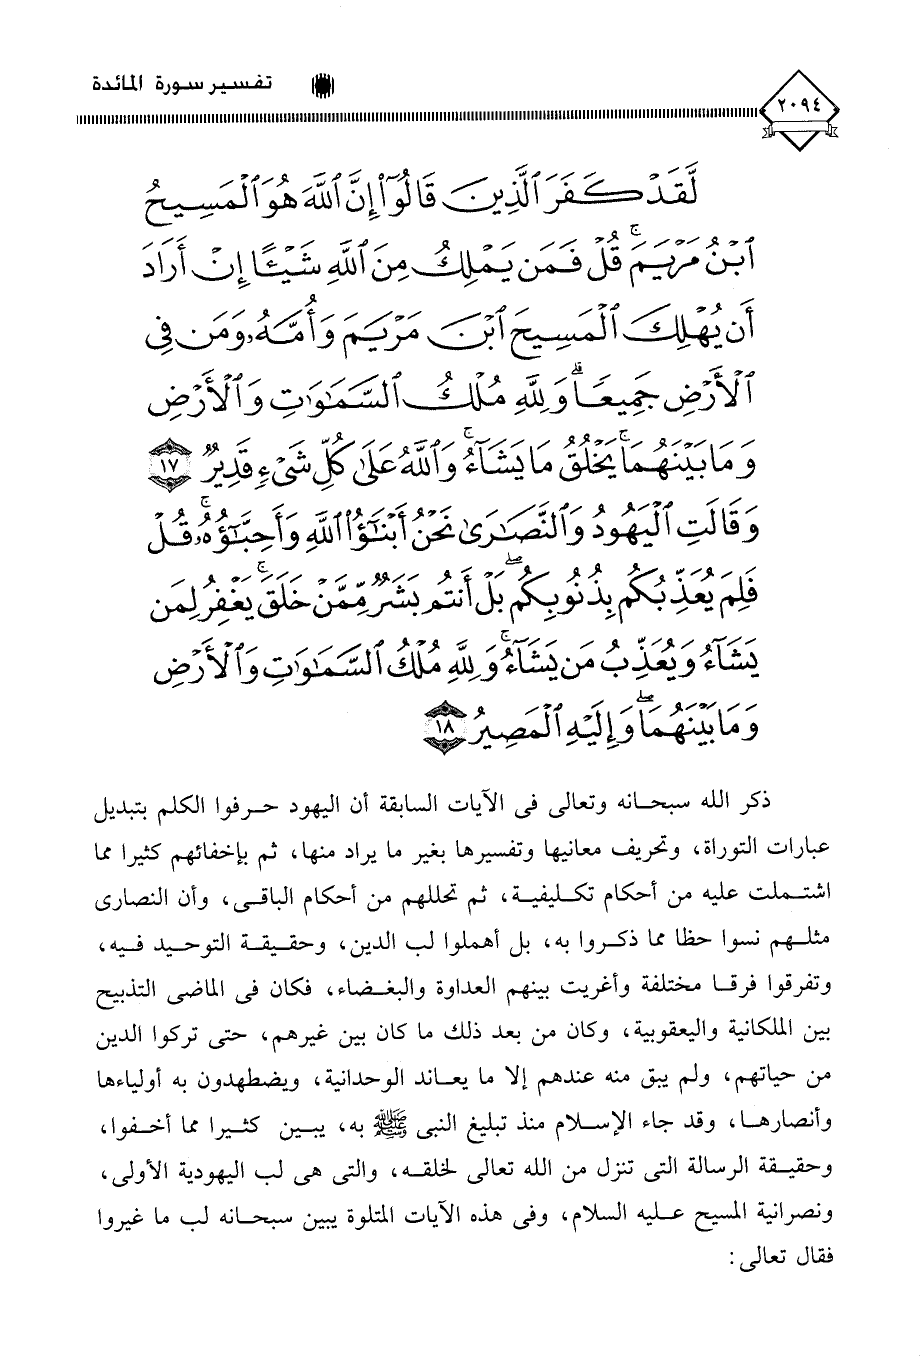 تفسير سورة المائدة
٢٠٩٤
لَّقَدْ كَفَرَ ٱلَّذِينَ قَالُوٓا۟ إِنَّ ٱللَّهَ هُوَ ٱلْمَسِيحُ
ٱبْنُ مَرْيَمَ ۚ قُلْ فَمَن يَمْلِكُ مِنَ ٱللَّهِ شَيْـًٔا إِنْ أَرَادَ
أَن يُهْلِكَ ٱلْمَسِيحَ ٱبْنَ مَرْيَمَ وَأُمَّهُۥ وَمَن فِى
ٱلْأَرْضِ جَمِيعًا ۗ وَلِلَّهِ مُلْكُ ٱلسَّمَٰوَٰتِ وَٱلْأَرْضِ
وَمَا بَيْنَهُمَا ۚ يَخْلُقُ مَا يَشَآءُ ۚ وَٱللَّهُ عَلَىٰ كُلِّ شَىْءٍ قَدِيرٌ ١٧
وَقَالَتِ ٱلْيَهُودُ وَٱلنَّصَٰرَىٰ نَحْنُ أَبْنَٰٓؤُا۟ ٱللَّهِ وَأَحِبَّٰٓؤُهُۥ ۚ قُلْ
فَلِمَ يُعَذِّبُكُم بِذُنُوبِكُم ۖ بَلْ أَنتُم بَشَرٌ مِّمَّنْ خَلَقَ ۚ يَغْفِرُ لِمَن
يَشَآءُ وَيُعَذِّبُ مَن يَشَآءُ ۚ وَلِلَّهِ مُلْكُ ٱلسَّمَٰوَٰتِ وَٱلْأَرْضِ
وَمَا بَيْنَهُمَا ۖ وَإِلَيْهِ ٱلْمَصِيرُ ١٨
ذكر الله سبحانه وتعالى فى الآيات السابقة أن اليهود حرفوا الكلم بتبديل
عبارات التوراة، وتحريف معانيها وتفسيرها بغير ما يراد منها، ثم بإخفائهم كثيرا مما
اشتملت عليه من أحكام تكليفية، ثم تحللهم من أحكام الباقى، وأن النصارى
مثلهم نسوا حظا مما ذكروا به، بل أهملوا لب الدين، وحقيقة التوحيد فيه،
وتفرقوا فرقا مختلفة وأغريت بينهم العداوة والبغضاء، فكان فى الماضى التذبيح
بين الملكانية واليعقوبية، وكان من بعد ذلك ما كان بين غيرهم، حتى تركوا الدين
من حياتهم، ولم يبق منه عندهم إلا ما يعاند الوحدانية، ويضطهدون به أولياءها
وأنصارها، وقد جاء الإسلام منذ تبليغ النبى ﷺ به، يبين كثيرا مما أخفوا،
وحقيقة الرسالة التى تنزل من الله تعالى لخلقه، والتى هى لب اليهودية الأولى،
ونصرانية المسيح عليه السلام، وفى هذه الآيات المتلوة يبين سبحانه لب ما غيروا
فقال تعالى: